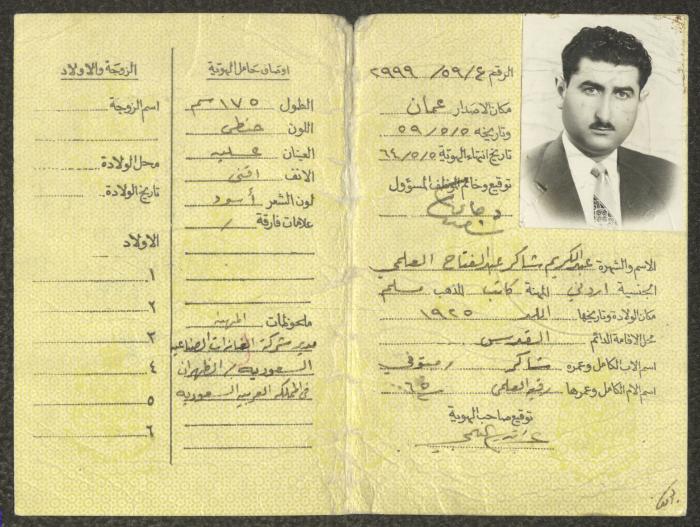 الرقم ع/٥٩/٢٩٩٩
مكان الاصدار عمان
وتاريخه ٥٩/٥/٥
تاريخ انتهاء الهوية ٦٤/٥/٥
توقيع وخاتم الموظف المسؤول
الاسم والشهرة عبد الكريم شاكر عبد الفتاح العلمي
الجنسية اردني المهنة كاتب المذهب مسلم
مكان الولادة وتاريخها اللد ١٩٢٥
محل الاقامة الدائم القدس
اسم الاب الكامل وعمره شاكر متوفي
اسم الام الكامل وعمرها العلمي ٦٥
توقيع صاحب الهوية
اوصاف حامل الهوية
الطول ١٧٥ سم
اللون حنطي
العينان عسليه
الانف اقنى
لون الشعر أسود
علامات فارقة /
ملحوظات المهنة
مدير شركة الغازات الصناعيه
السعوديه / الظهران
في المملكه العربيه السعوديه
الزوجة والاولاد
اسم الزوجة
محل الولادة
تاريخ الولادة
الاولاد
١
٢
٣
٤
٥
٦